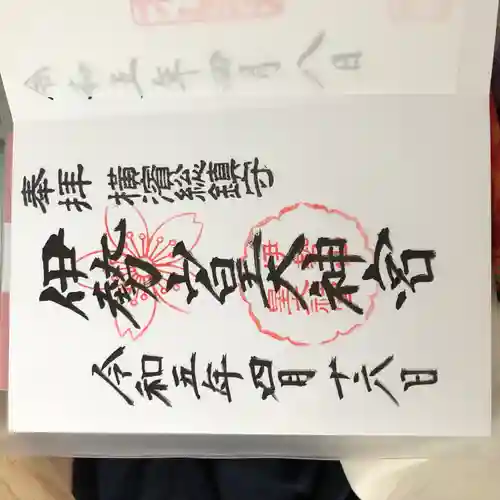 奉拝 横濱総鎮守
伊勢山皇大神宮
令和五年四月十六日
令和五年四月八日